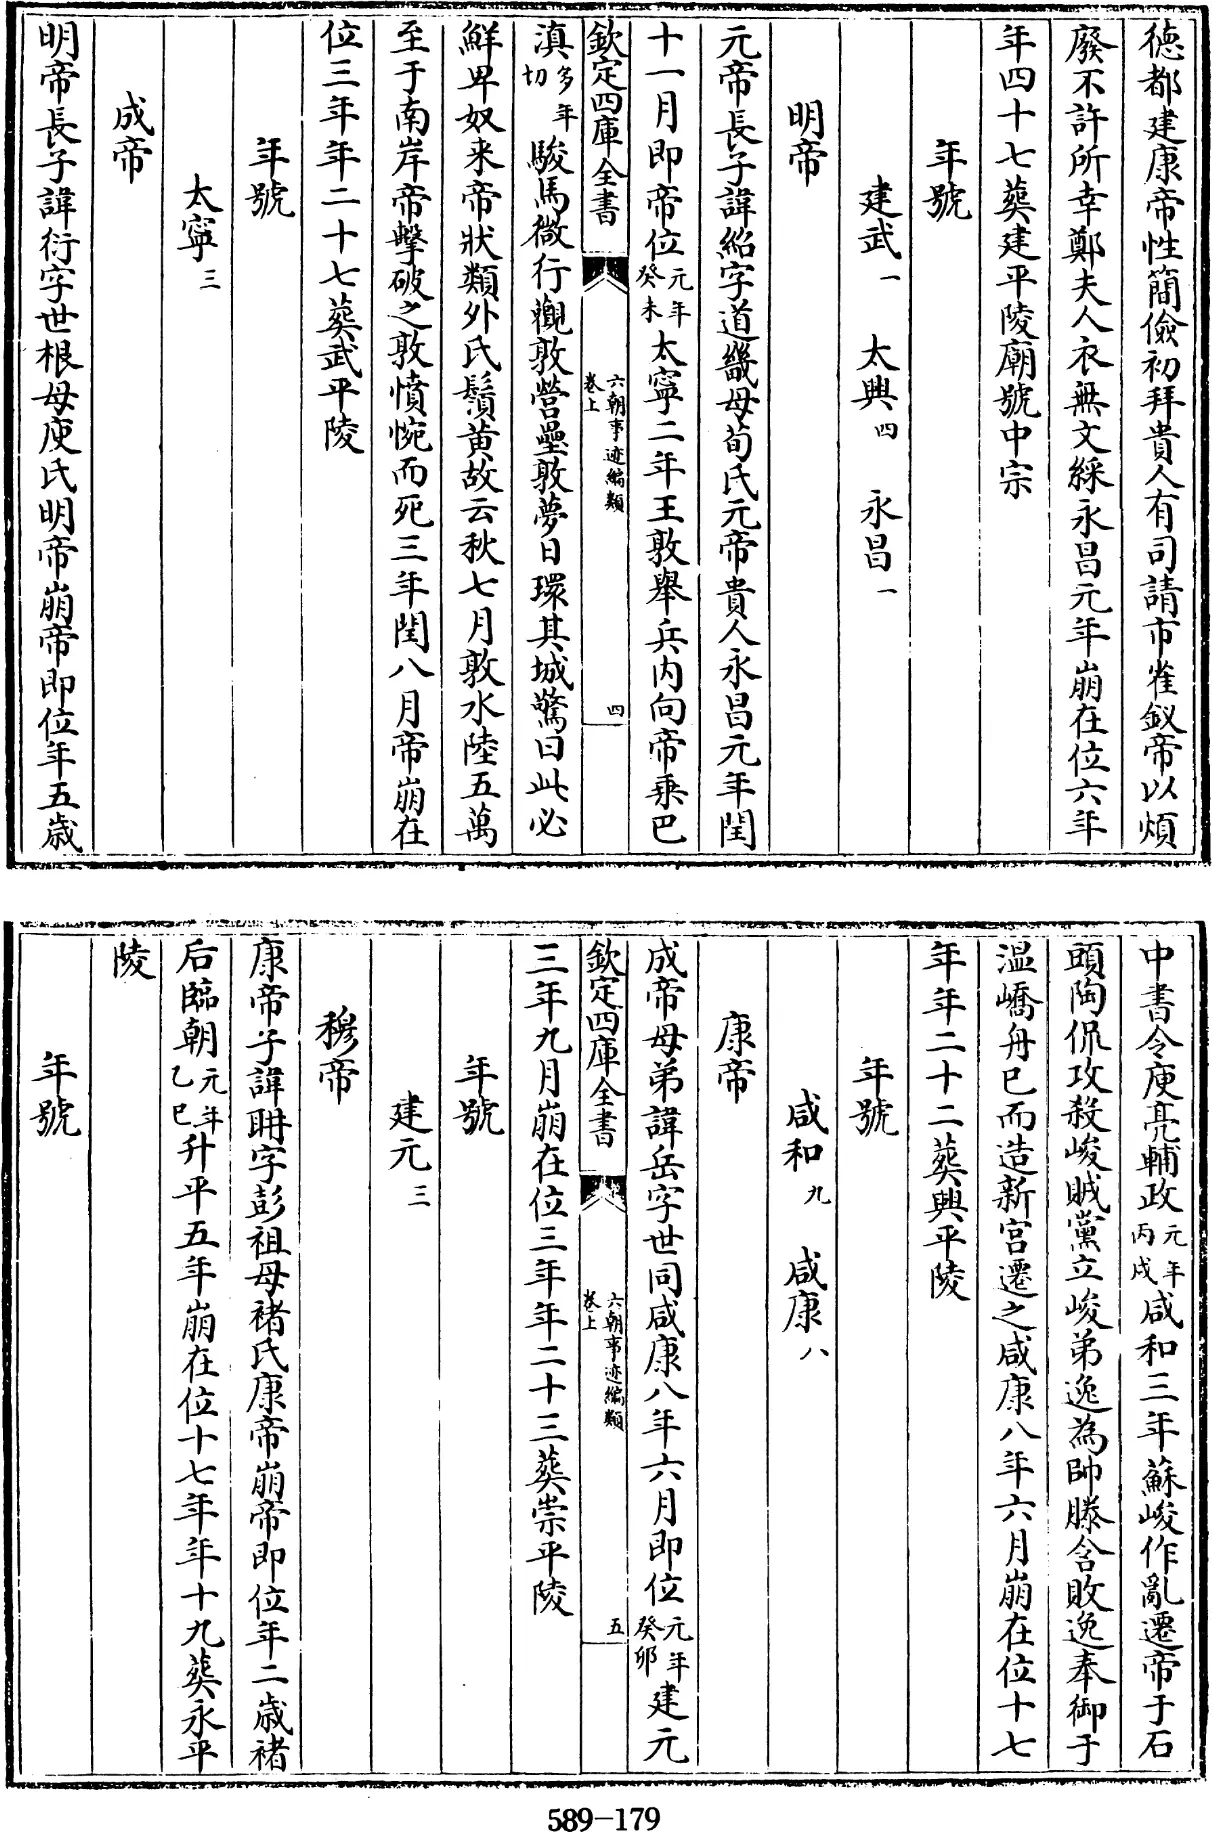 德都建康帝性簡儉初拜貴人有司請市雀釵帝以煩
廢不許所幸鄭夫人衣無文綵永昌元年崩在位六年
年四十七葬建平陵廟號中宗
年號
建武一 太興四 永昌一
明帝
元帝長子諱紹字道畿母荀氏元帝貴人永昌元年閏
十一月即帝位元年癸未太寧二年王敦舉兵内向帝乗巴
欽定四庫全書 六朝事迹編類卷上 四
滇多年切駿馬微行觀敦營壘敦夢日環其城驚曰此必
鮮卑奴来帝狀類外氏鬚黄故云秋七月敦水陸五萬
至于南岸帝擊破之敦憤惋而死三年閏八月帝崩在
位三年年二十七葬武平陵
年號
太寧三
成帝
明帝長子諱衍字世根母庾氏明帝崩帝即位年五歳
中書令庾亮輔政元年丙戌咸和三年蘇峻作亂遷帝于石
頭陶侃攻殺峻賊黨立峻弟逸為帥滕含敗逸奉御于
温嶠舟已而造新宮遷之咸康八年六月崩在位十七
年年二十二葬興平陵
年號
咸和九 咸康八
康帝
成帝母弟諱岳字世同咸康八年六月即位元年癸卯建元
欽定四庫全書 六朝事迹編類卷上 五
三年九月崩在位三年年二十三葬崇平陵
年號
建元三
穆帝
康帝子諱聃字彭祖母褚氏康帝崩帝即位年二歳褚
后臨朝元年乙巳升平五年崩在位十七年年十九葬永平
陵
年號
589-179